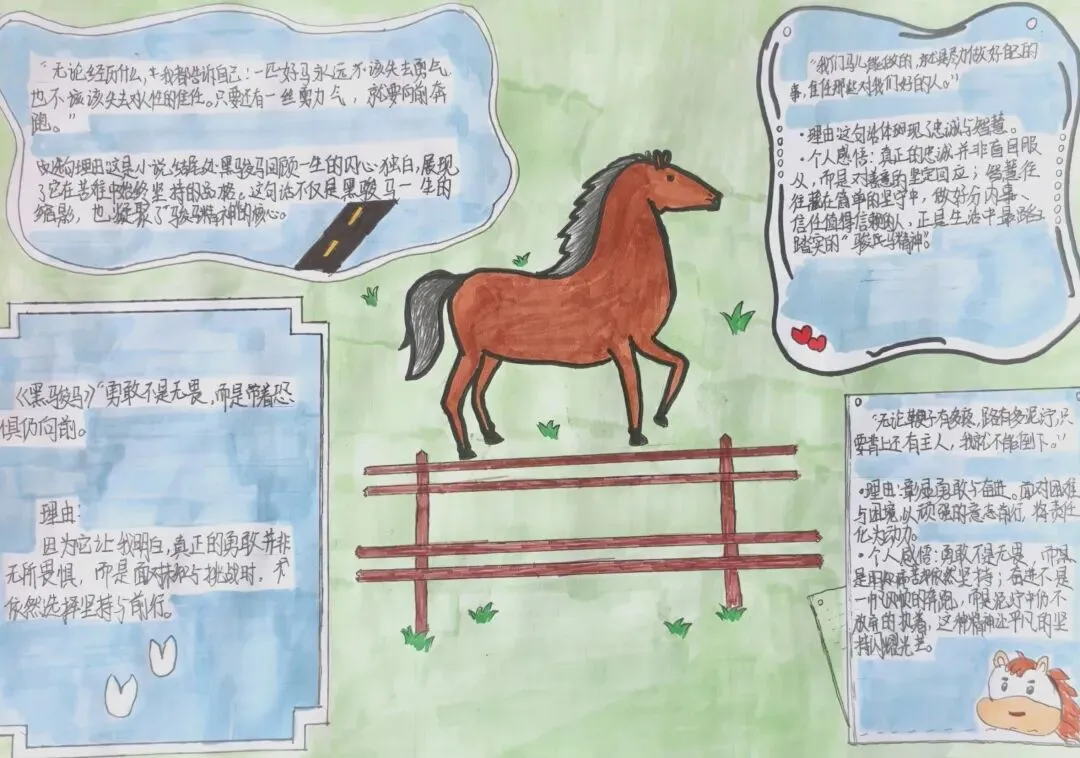 “无论经历什么,我都告诉自己:一匹好马永远不该失去勇气
也不应该失去对人性的信任。只要还有一丝勇力气,就要向前奔
跑。”
理由这是小说结尾处黑骏马回顾一生的内心独白,展现
了它在苦难中始终坚持的品格。这句话不仅是黑骏马一生的
缩影,也凝聚了“骏马精神”的核心。
“我们马儿能做的,就是尽力做好自己的
事,信任那些对我们好的人。”
•理由这句话体现了忠诚与智慧。
•个人感悟:真正的忠诚并非盲目服
从,而是对善意的坚定回应;智慧往
往藏在简单的坚守中,做好分内事、
信任值得信赖的人,正是生活中最
踏实的“骏马精神”。
《黑骏马》“勇敢不是无畏,而是带着恐
惧仍向前。
理由:
因为它让我明白,真正的勇敢并非
无所畏惧,而是面对与挑战时,
依然选择坚持与前行。
“无论鞭子有多疼,路有多泥泞,只
要背上还有主人,我就不能倒下。”
•理由:彰显勇敢与奋进。面对困难
与困境,以顽强的意志前行,将责任
化为动力。
•个人感悟:勇敢不是无畏,而是
依然坚持;奋进不是
一帆风顺的奔跑,而是泥泞中仍不
放弃的执着,这种精神让平凡的坚
持闪耀光芒。